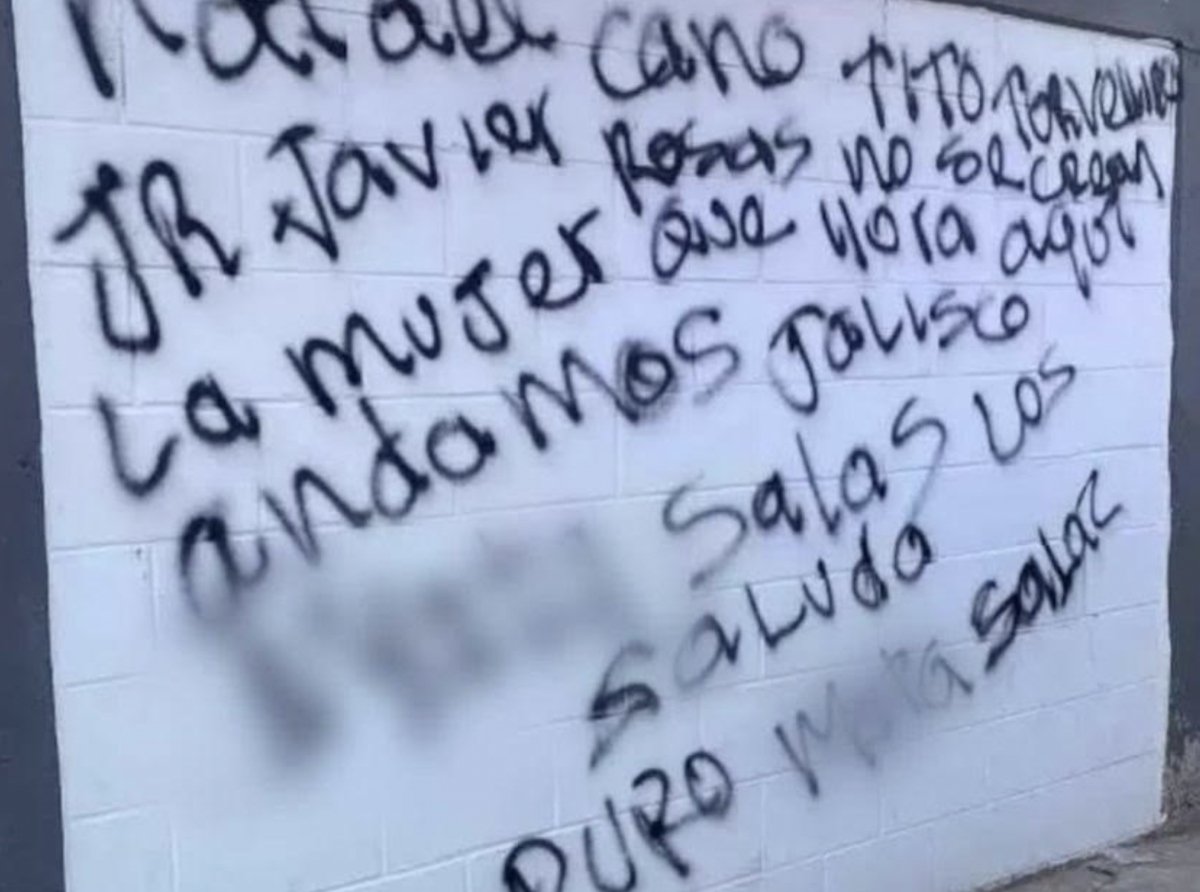 Rafael Cano TITO TORVELLINO
JR Javier Rosas NO SE CREAN
La MUJer QUE llORA aqui
andaMOS JALISCO
SalaS LOS
SaLUda
PURO Mata SaLaZ